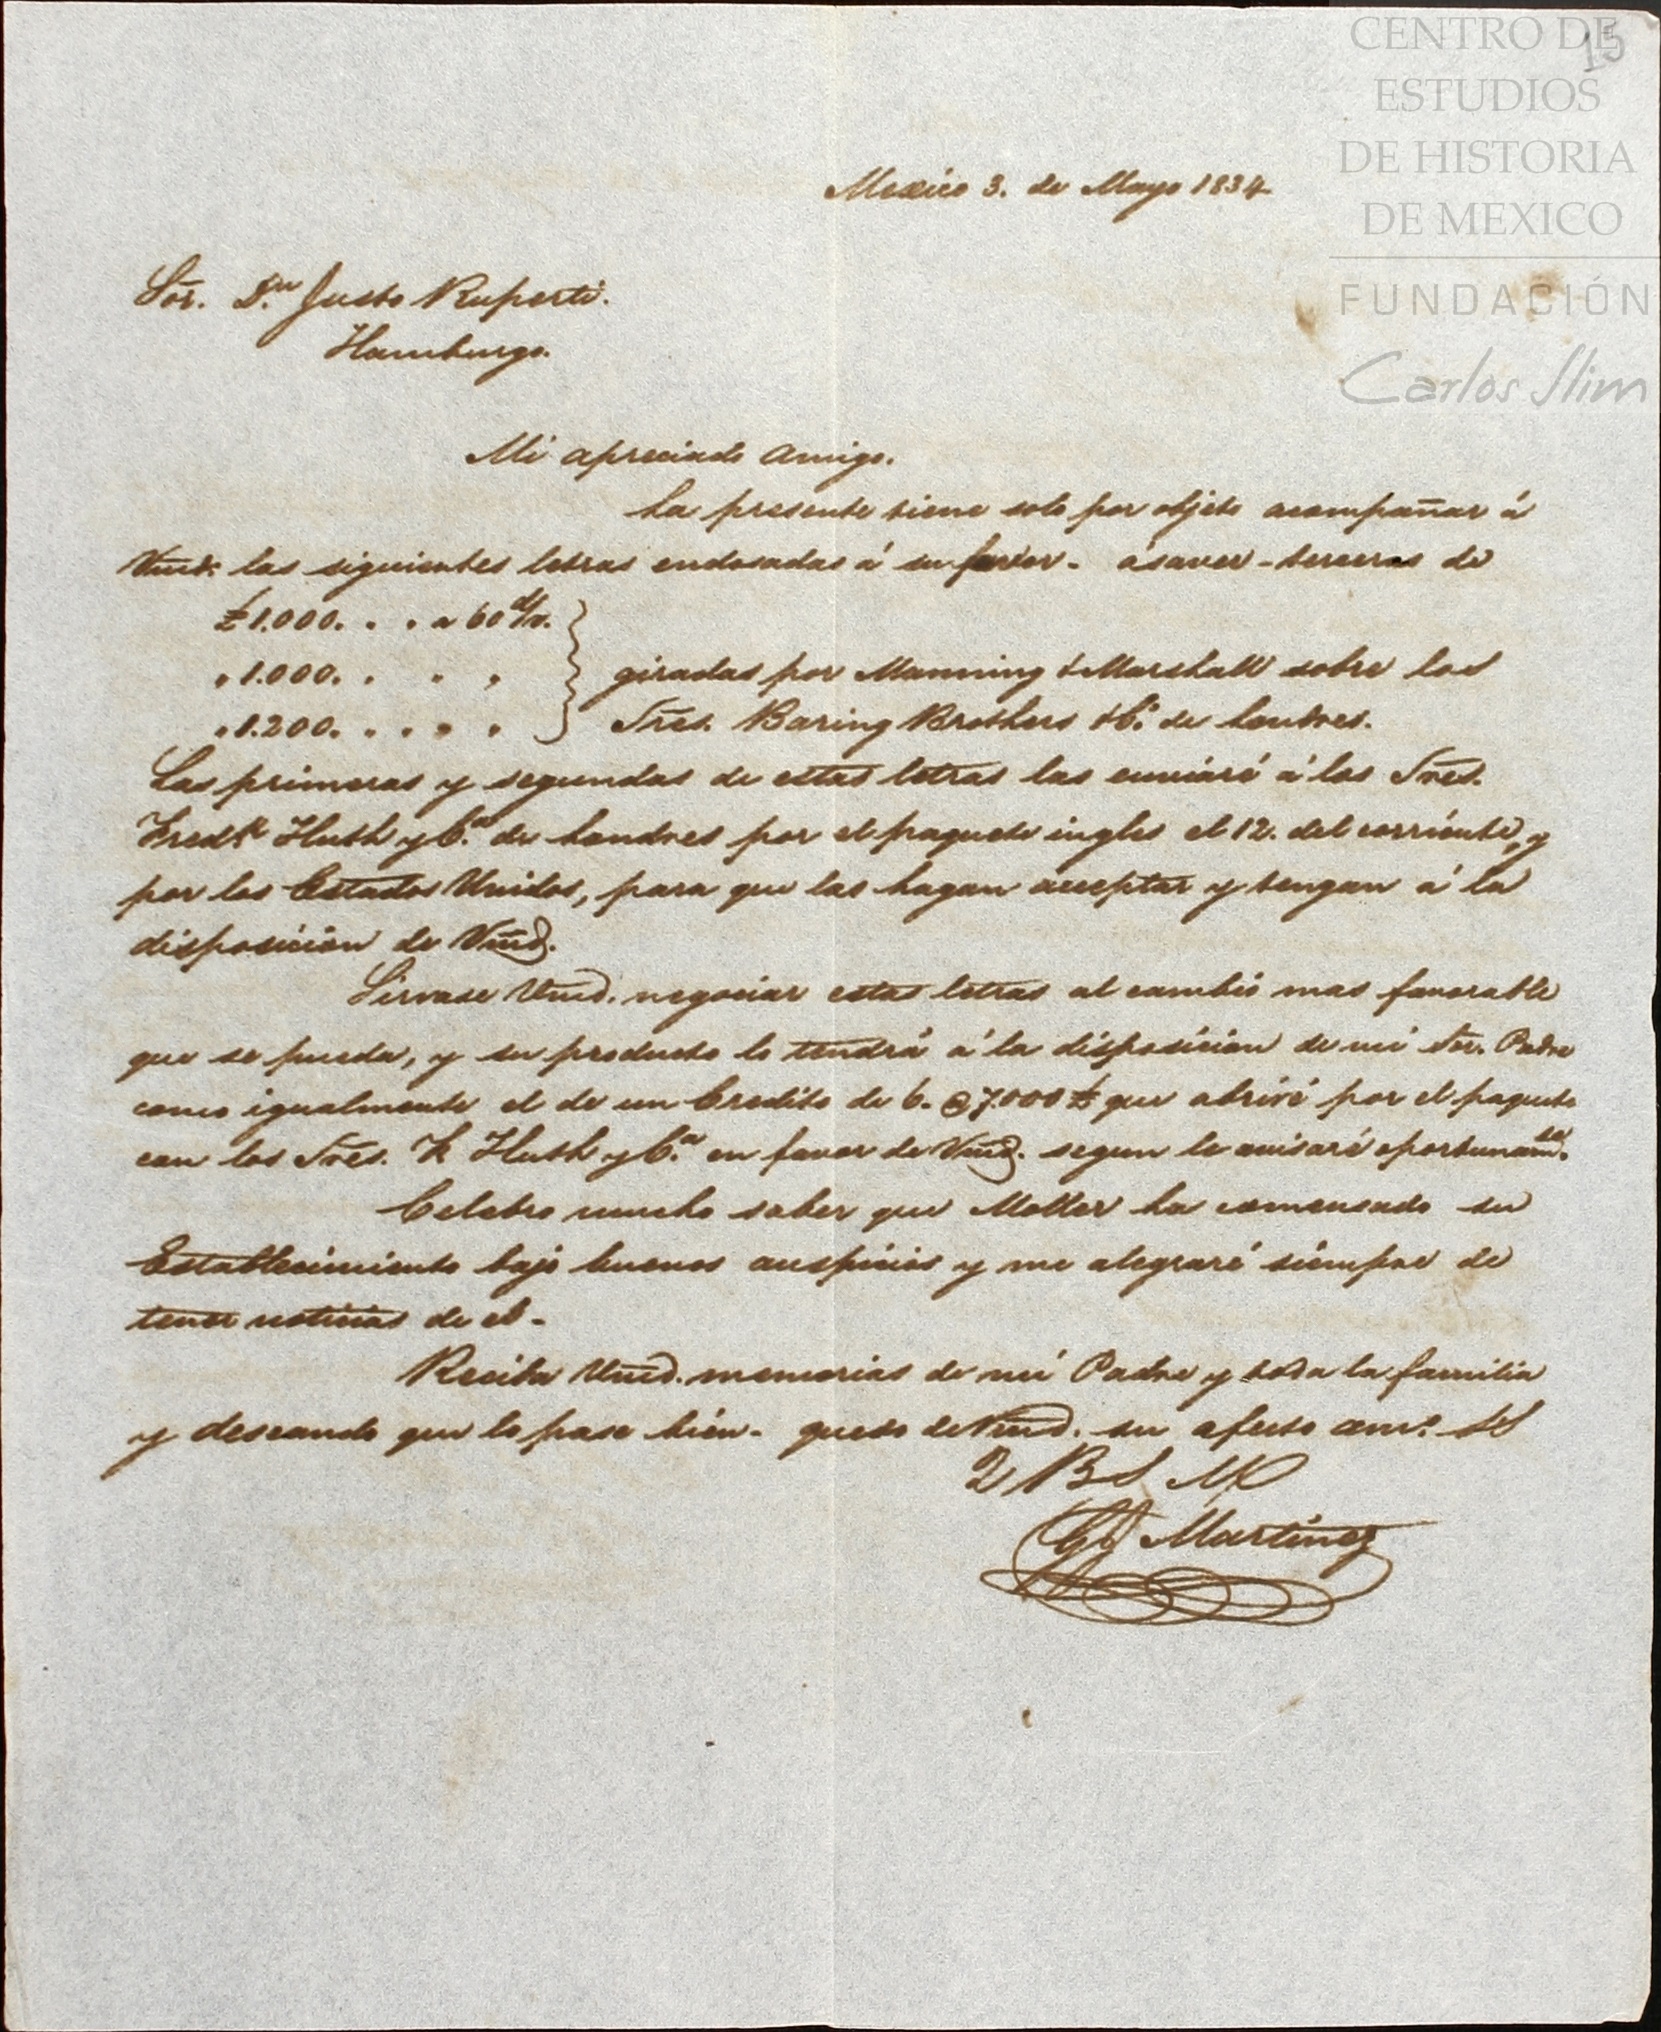 CENTRO DE
ESTUDIOS
DE HISTORIA
DE MEXICO
FUNDACIÓN
Carlos Slim
15
Mexico 3. de Mayo 1834
Sor. Dn. Justo Ruperti.
Hamburgo.
Mi apreciado amigo.
La presente tiene solo por objeto acompañar á
Vmd. las siguientes letras endosadas á su favor. asaver - terceras de
£1.000. . . a 60 d/v.
" 1.000. . " "
" 1.200. . . " "
giradas por Manning & Marshall sobre los
Sres. Baring Brothers & Co. de Londres.
Las primeras y segundas de estas letras las enviaré á los Sres.
Fredk. Huth y Ca. de Londres por el paquete ingles el 12. del corriente, y
por los Estados Unidos, para que las hagan acceptar y tengan á la
disposicion de Vmd.
Sirvase Vmd. negociar estas letras al cambio mas favorable
que se pueda, y su producto lo tendrá á la disposicion de mi Sor. Padre
como igualmente el de un Credito de 6. @ 7.000 £ que abriré por el paquete
con los Sres. F. Huth y Ca. en favor de Vmd. segun le avisaré oportunamte.
Celebro mucho saber que Moller ha comensado su
Establecimiento bajo buenos auspicios y me alegraré siempre de
tener noticias de el.
Reciba Vmd. memorias de mi Padre y toda la familia
y deseando que lo pase bien. quedo de Vmd. su afecto amo. SS
Q B S M
Martinez